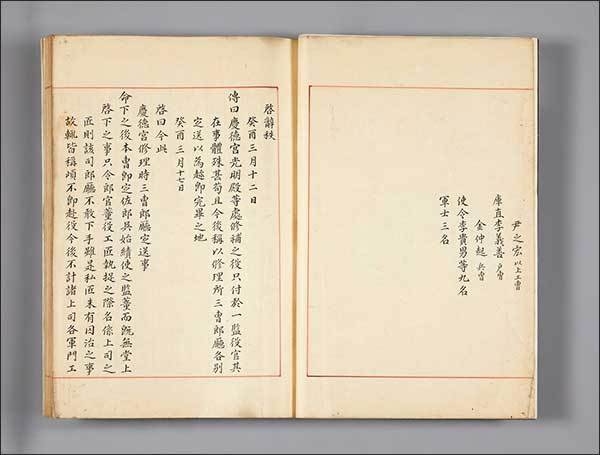 尹之宏 以上工曹
庫直李義善 戶曹
金仲起 兵曹
使令李貴男等九名
軍士三名
啓辭秩
癸酉三月十二日
傳曰慶德宮光明殿等處修補之後只付於一監役官其
在事體殊甚苟且今後稱以修理所三曹郎廳各別
定送以爲趁卽完畢之地
癸酉三月十七日
啓曰今此
慶德宮修理時三曹郎廳定送事
命下之後本曹卽定佐郎具始績使之監董而旣無堂上
啓下之事只令郎官董役工匠執捉之際名係上司之
匠則該司郎廳不敢下手雖是私匠未有囚治之事
故輒皆稱頉不卽赴役今後不計諸上司各軍門工